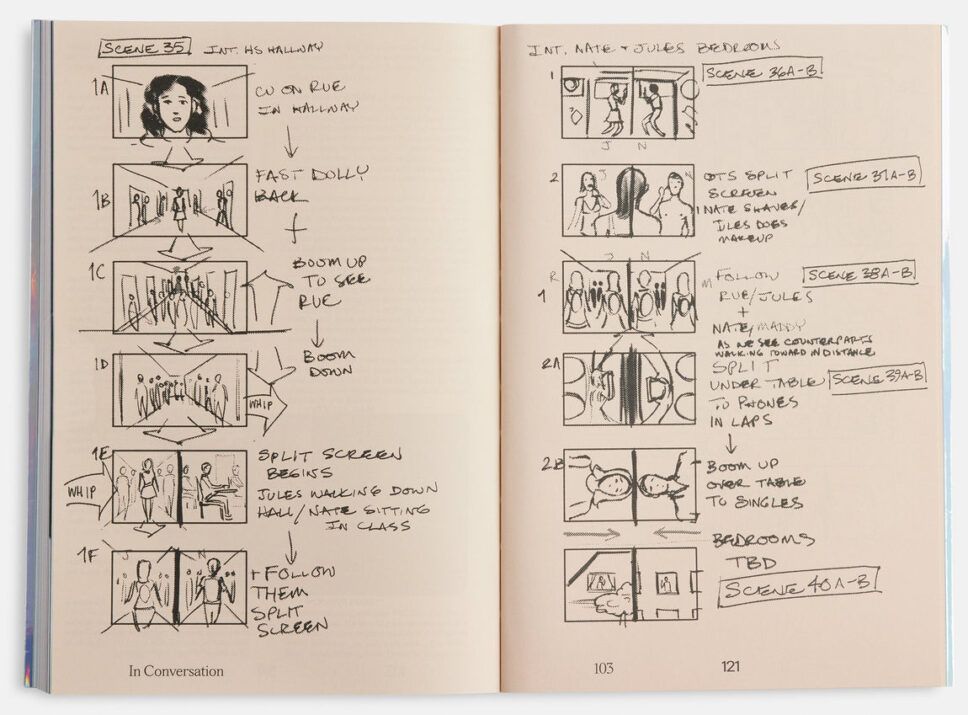 SCENE 35 INT. HS HALLWAY
1A
CU ON RUE
IN HALLWAY
1B
FAST DOLLY
BACK
+
1C
BOOM UP
TO SEE
RUE
1D
BOOM
DOWN
WHIP
1E
WHIP
SPLIT SCREEN
BEGINS
JULES WALKING DOWN
HALL/NATE SITTING
IN CLASS
1F
J N
+ FOLLOW
THEM
SPLIT
SCREEN
In Conversation
INT. NATE + JULES BEDROOMS
SCENE 36A-B
1
J N
2
J N
OTS SPLIT
SCREEN
NATE SHAVES/
JULES DOES
MAKEUP
SCENE 37A-B
1
R J N M
FOLLOW
RUE/JULES
+
NATE/MADDY
AS WE SEE COUNTERPARTS
WALKING TOWARD IN DISTANCE
SCENE 38A-B
2A
SPLIT
UNDER TABLE
TO PHONES
IN LAPS
SCENE 39A-B
2B
BOOM UP
OVER TABLE
TO SINGLES
BEDROOMS
TBD
SCENE 40A-B
103 121